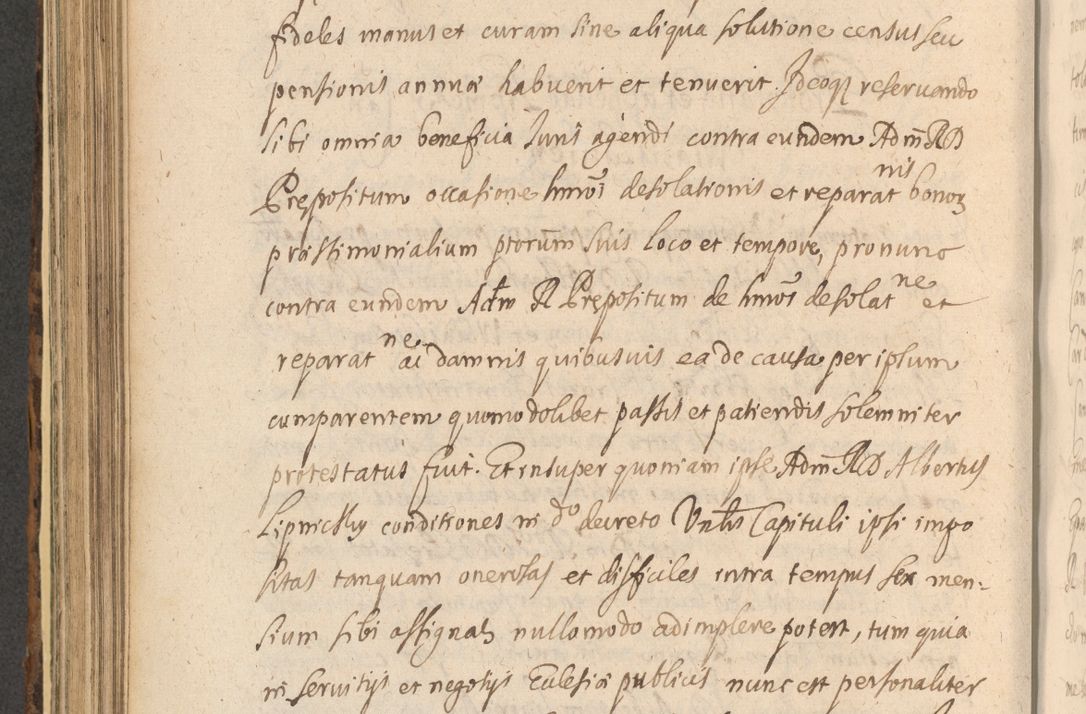 fideles manus et curam sine aliqua solutione census seu
pensionis annuæ habuerit et tenuerit. Ideoq reservando
sibi omnia beneficia Iuris agendi contra eundem Adm RD
Prępositum occasione hmōi desolationis et reparatnis bonoȝ
præstimonialium ptorum suis loco et tempore, pronunc
contra eundem Adm R Prępositum de hmōi desolatne et
reparatne ac damnis quibusvis ea de causa per ipsum
comparentem quomodolibet passis et patiendis solemniter
protestatus fuit. Et insuper quoniam ipse Adm RD Albertus
Lipnicky conditiones in do decreto Vnlis Capituli ipsi impo
sitas tanquam onerosas et difficiles intra tempus sex men-
sium sibi assignat nullomodo adimplere potest, tum quia
in servitys et negotys Ecclesiæ publicis nunc est personaliter